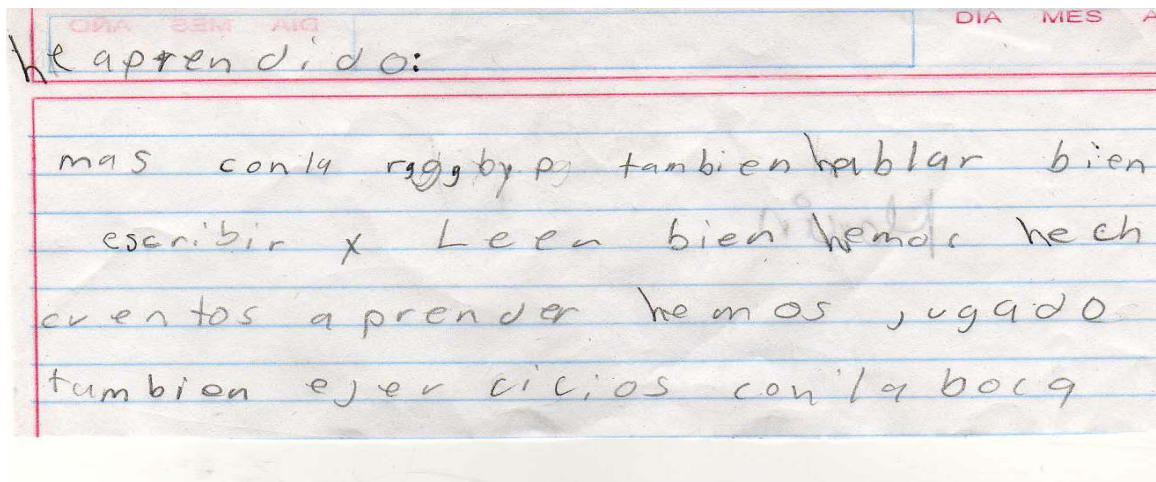 DIA MES
he aprendido:
mas conla by tambien hablar bien
escribir x Leer bien hemos hech
cuentos aprender hemos jugado
tambien ejercicios con la boca